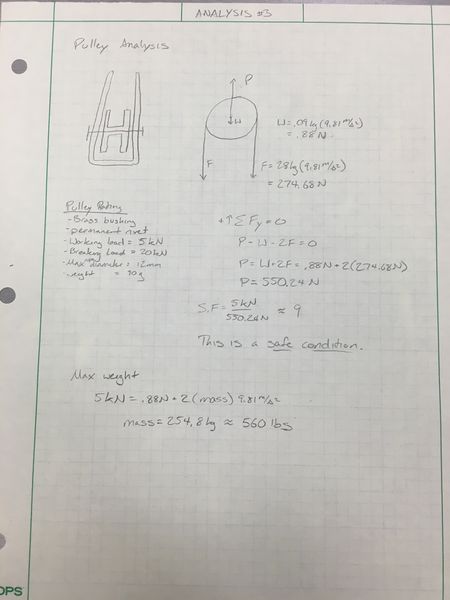 ANALYSIS #3
Pulley Analysis
P
W
F
W = .09 kg (9.81 m/s²)
= .88 N
F = 28 kg (9.81 m/s²)
= 274.68 N
Pulley Rating
- Brass bushing
- permanent rivet
- Working load = 5 kN
- Breaking load = 20 kN
- Max diameter = 12mm
- weight = 90 g
+↑ΣFy = 0
P - W - 2F = 0
P = W + 2F = .88N + 2(274.68N)
P = 550.24 N
S.F = 5kN / 550.24N ≈ 9
This is a safe condition.
Max weight
5kN = .88N + 2 (mass) 9.81 m/s²
mass = 254.8 kg ≈ 560 lbs
OPS